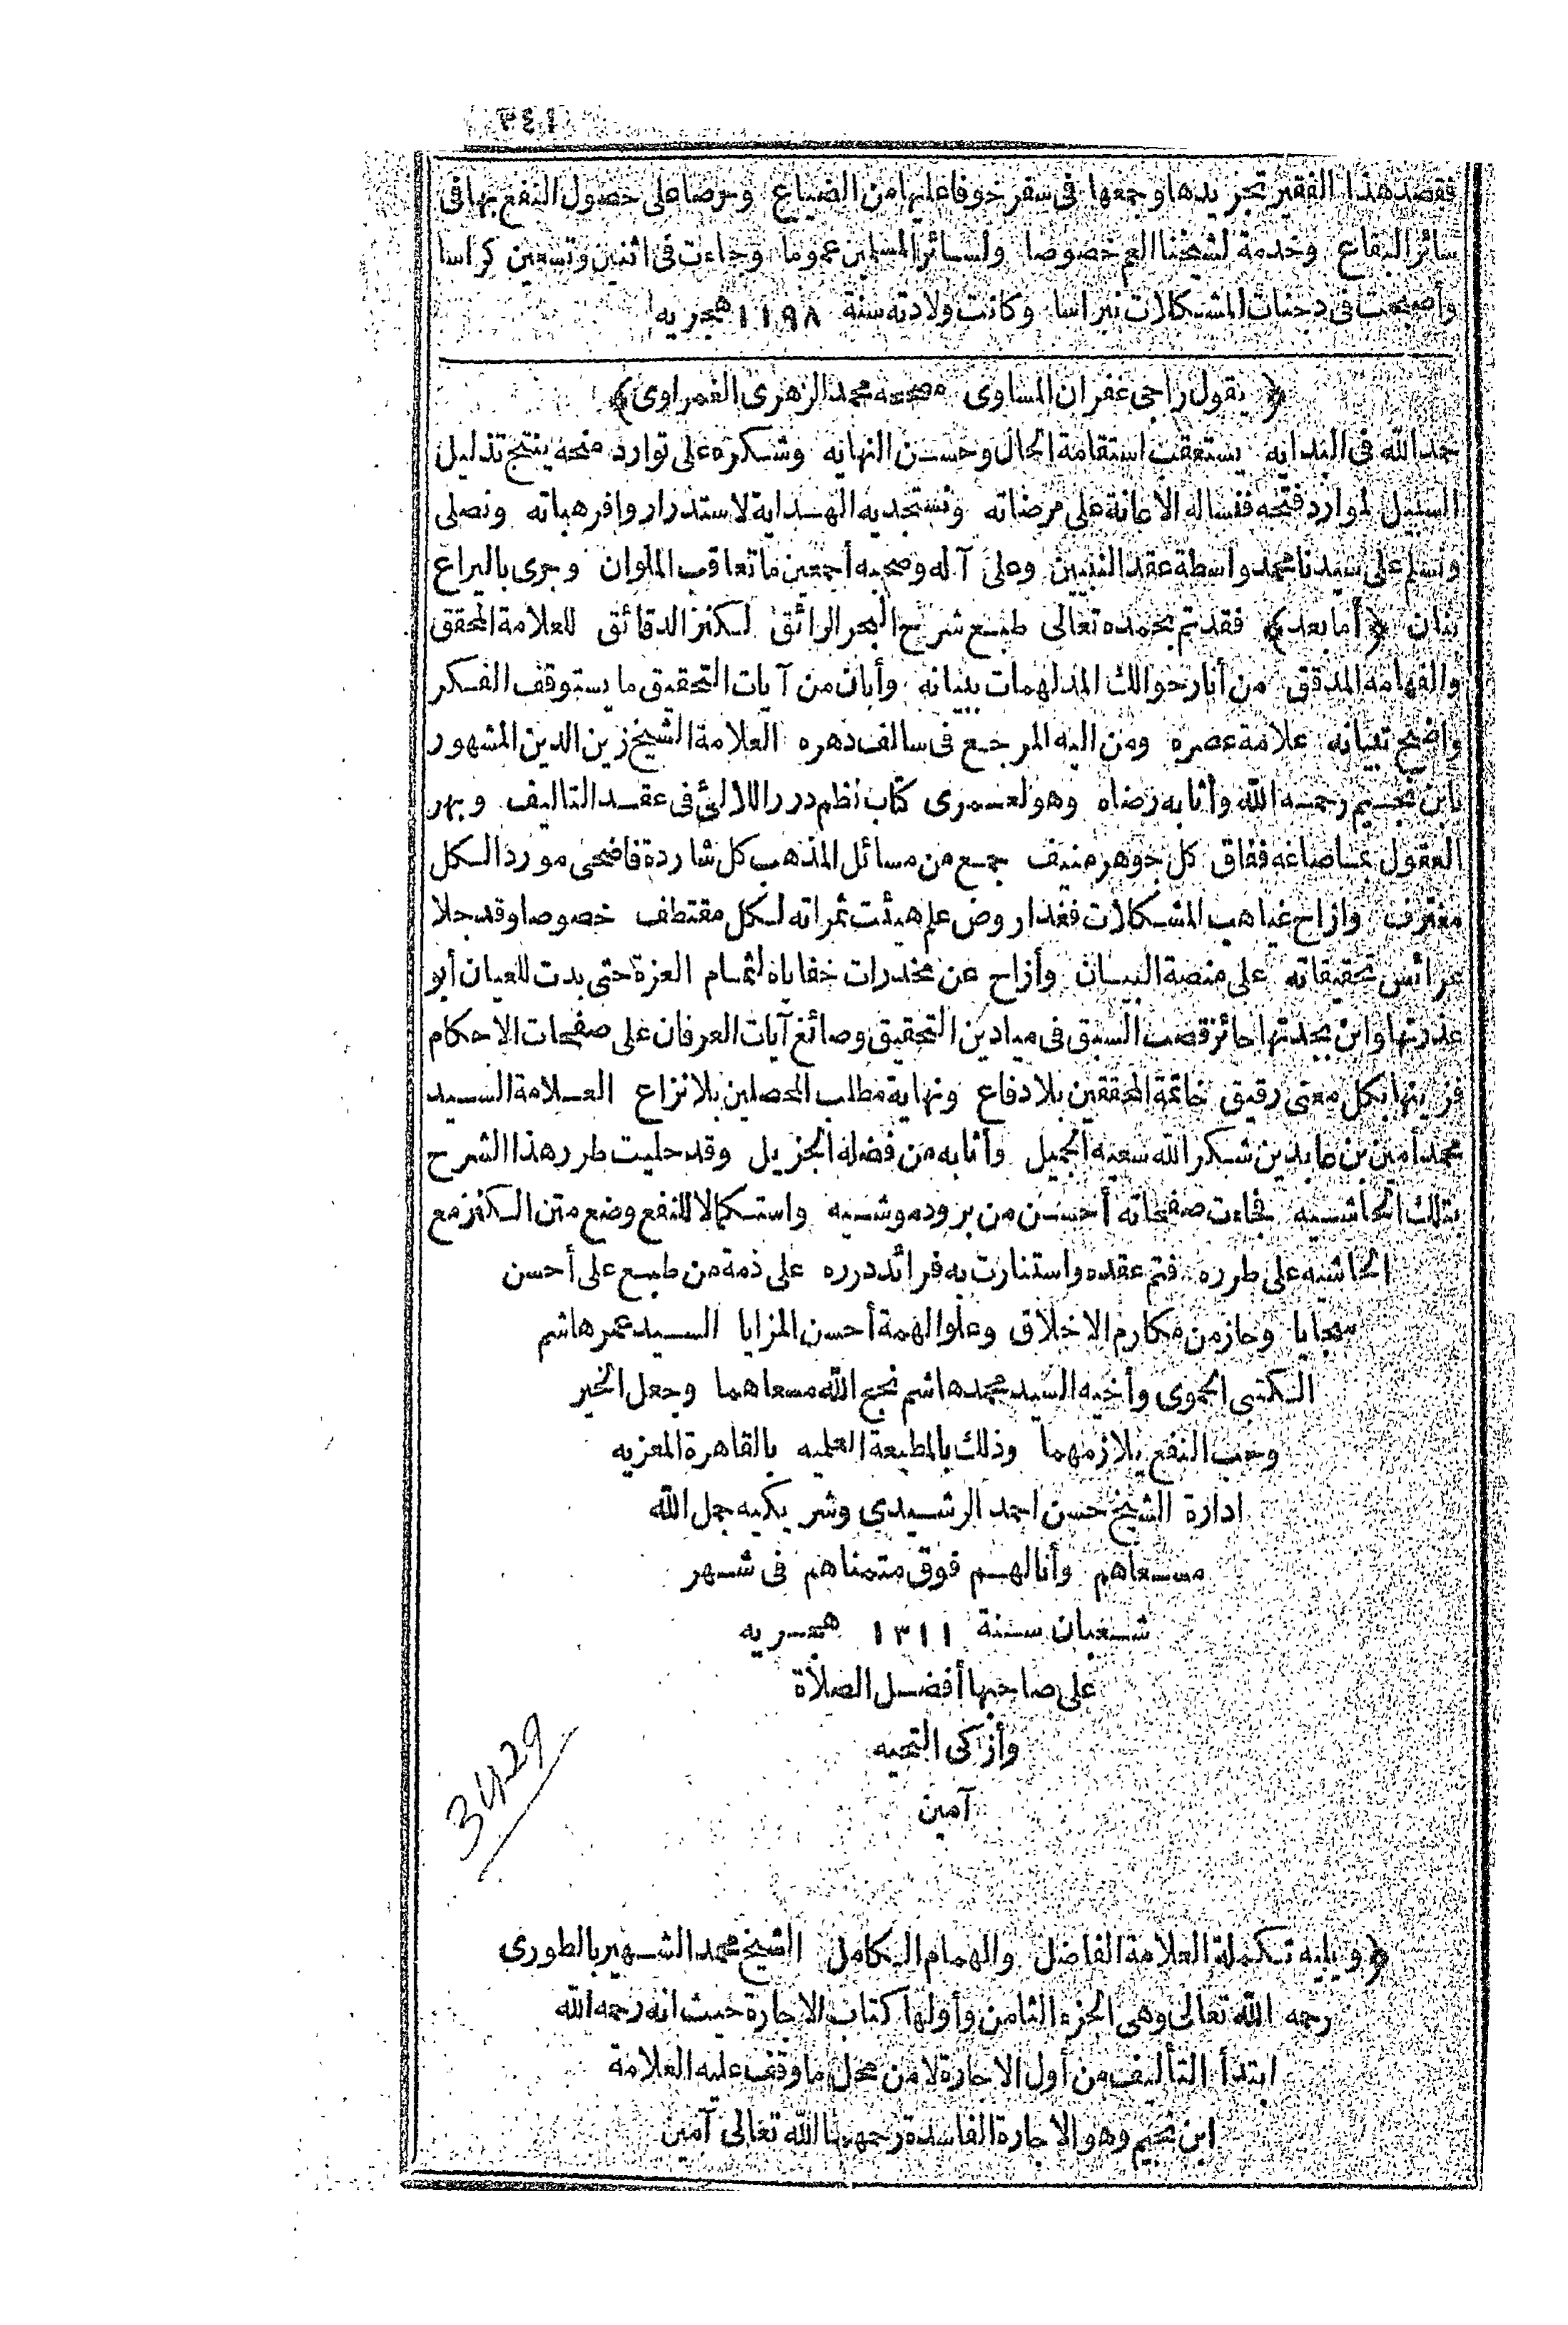 ٣٤١
فقصد هذا الفقير تجريدها وجمعها فى سفر خوفا عليها من الضياع وحرصا على حصول النفع بها فى
سائر البقاع وخدمة لشيخنا العم خصوصا ولسائر المسلمين عموما وجاءت فى اثنين وتسعين كراسا
وأصبحت فى دجنات المشكلات نبراسا وكانت ولادته سنة ١١٩٨ هجريه
﴿ يقول راجى غفران المساوى مصححه محمد الزهرى الغمراوى﴾
حمد الله فى البدايه يستعقب استقامة الحال وحسن النهايه وشكره على توارد منحه ينتج تذليل
السبيل لموارد فتحه فنسأله الاعانة على مرضاته ونستجديه الهداية لاستدرار وافر هباته ونصلى
ونسلم على سيدنا محمد واسطة عقد النبيين وعلى آله وصحبه أجمعين ما تعاقب الملوان وجرى باليراع
بنان ﴿أما بعد﴾ فقد تم بحمده تعالى طبع شرح البحر الرائق لكنز الدقائق للعلامة المحقق
والفهامة المدقق من أنار حوالك المدلهمات ببنانه وأبان من آيات التحقيق ما يستوقف الفكر
واضح تبيانه علامة عصره ومن اليه المرجع فى سالف دهره العلامة الشيخ زين الدين المشهور
بابن نجيم رحمه الله وأثابه رضاه وهو لعمرى كتاب نظم درر اللالئ فى عقد التاليف وبهر
العقول بما صاغه ففاق كل جوهر منيف جمع من مسائل المذهب كل شاردة فاضحى مورد الكل
مغترف وازاح غياهب المشكلات فغدا روض علم هيئت ثمراته لكل مقتطف خصوصا وقد جلا
عرائس تحقيقاته على منصة البيان وأزاح عن مخدرات خفاياه لثام العزة حتى بدت للعيان أبو
عذرتها وابن بجدتها حائز قصب السبق فى ميادين التحقيق وصائغ آيات العرفان على صفحات الاحكام
فزينها بكل معنى رقيق خاتمة المحققين بلا دفاع ونهاية مطلب المحصلين بلا نزاع العلامة السيد
محمد أمين بن عابدين شكر الله سعيه الجميل وأثابه من فضله الجزيل وقد حليت طرر هذا الشرح
بتلك الحاشيه فجاءت صفحاته أحسن من برود موشيه واستكمالا للنفع وضع متن الكنز مع
الحاشيه على طرره فتم عقده واستنارت به فرائد درره على ذمة من طبع على أحسن
سجايا وحاز من مكارم الاخلاق وعلو الهمة أحسن المزايا السيد عمر هاشم
الكتبى الحموى وأخيه السيد محمد هاشم نجح الله مسعاهما وجعل الخير
وصب النفع يلازمهما وذلك بالمطبعة العلميه بالقاهرة المعزيه
ادارة الشيخ حسن احمد الرشيدي وشريكيه جمل الله
مسعاهم وأنالهم فوق متمناهم فى شهر
شعبان سنة ١٣١١ هجريه
على صاحبها أفضل الصلاة
وأزكى التحيه
آمين
3429
﴿ويليه تكملة العلامة الفاضل والهمام الكامل الشيخ محمد الشهير بالطورى
رحمه الله تعالى وهى الجزء الثامن وأولها كتاب الاجارة حيث انه رحمه الله
ابتدأ التأليف من أول الاجارة لا من محل ما وقف عليه العلامة
ابن نجيم وهو الاجارة الفاسدة رحمهما الله تعالى آمين